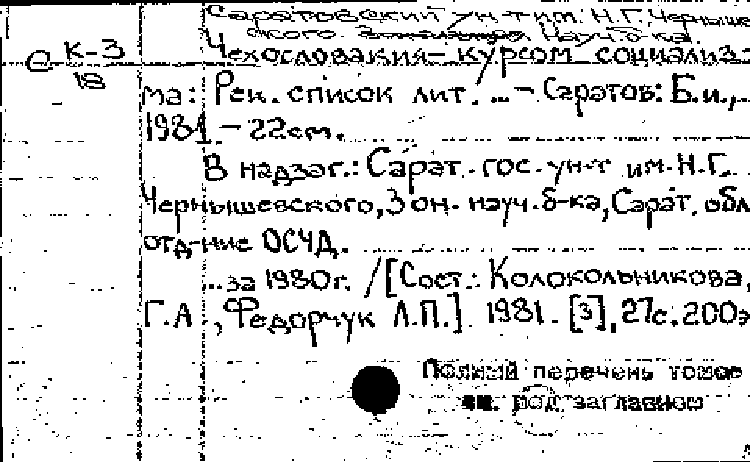 Саратовский ун-т им. Н.Г. Черныше
ского. Науч. б-ка.
С К-3
18
Чехословакия – курсом социализ-
ма: Рек. список лит. ... – Саратов: Б.и.,
1981. – 22см.
В надзаг.: Сарат. гос. ун-т им. Н.Г.
Чернышевского, Зон. науч. б-ка, Сарат. обл
отд-ние ОСЧД.
...за 1980г. / [Сост.: Колокольникова,
Г.А., Федорчук Л.П.]. 1981. [3], 27с. 200э
Полный перечень томов
см. под заглавием